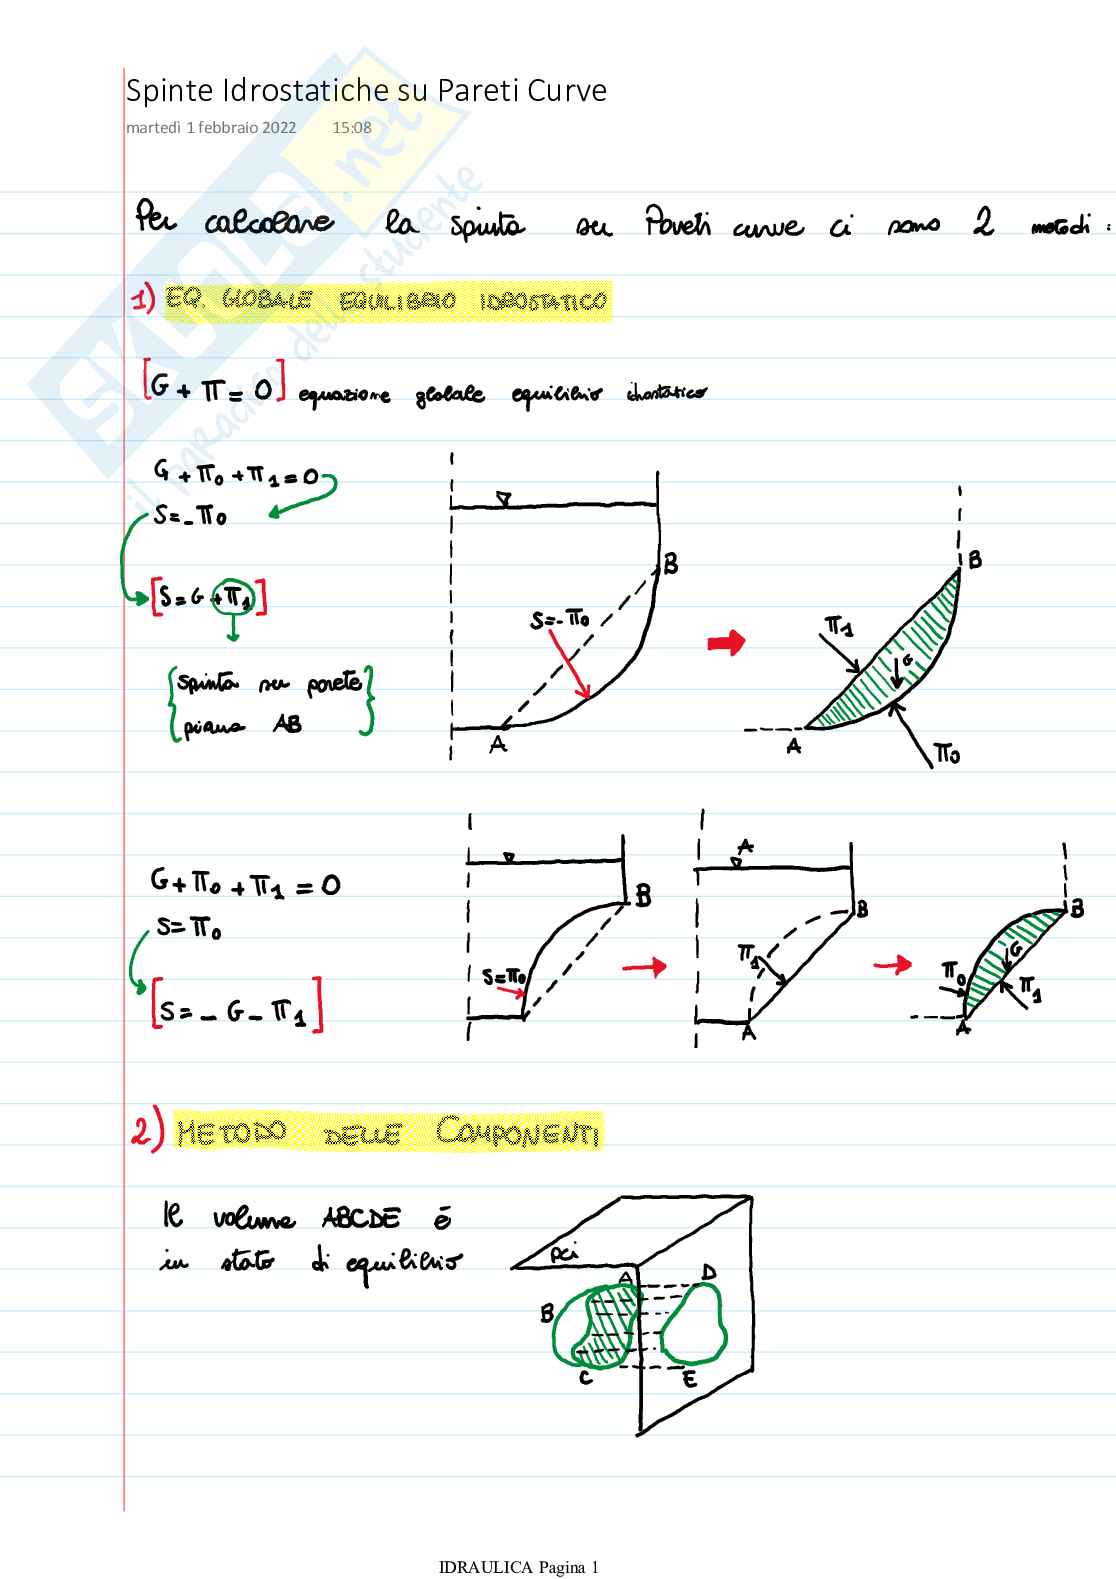 Spinte Idrostatiche su Pareti Curve
martedì 1 febbraio 2022 15:08
SKUOLA.net
il paradiso dello studente
Per calcolare la spinta su Pareti curve ci sono 2 metodi:
1) EQ. GLOBALE EQUILIBRIO IDROSTATICO
[G + Π = 0] equazione globale equilibrio idrostatico
G + Π0 + Π1 = 0
S = - Π0
[S = G + Π1]
{spinta su parete
piana AB}
B
S = - Π0
A
B
Π1
G
A
Π0
G + Π0 + Π1 = 0
S = Π0
[S = - G - Π1]
B
S = Π0
A
B
Π1
A
B
G
Π0
Π1
A
2) METODO DELLE COMPONENTI
Il volume ABCDE è
in stato di equilibrio
pci
A
D
B
C
E
IDRAULICA Pagina 1